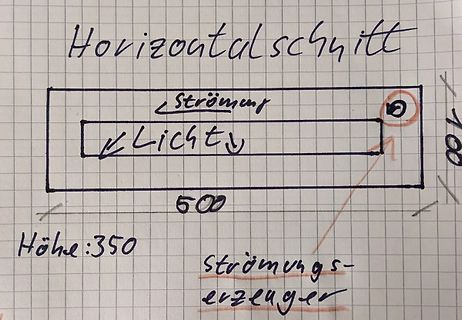 Horizontalschnitt
Strömung
Licht
100
500
Höhe:350
Strömungs-
erzeuger